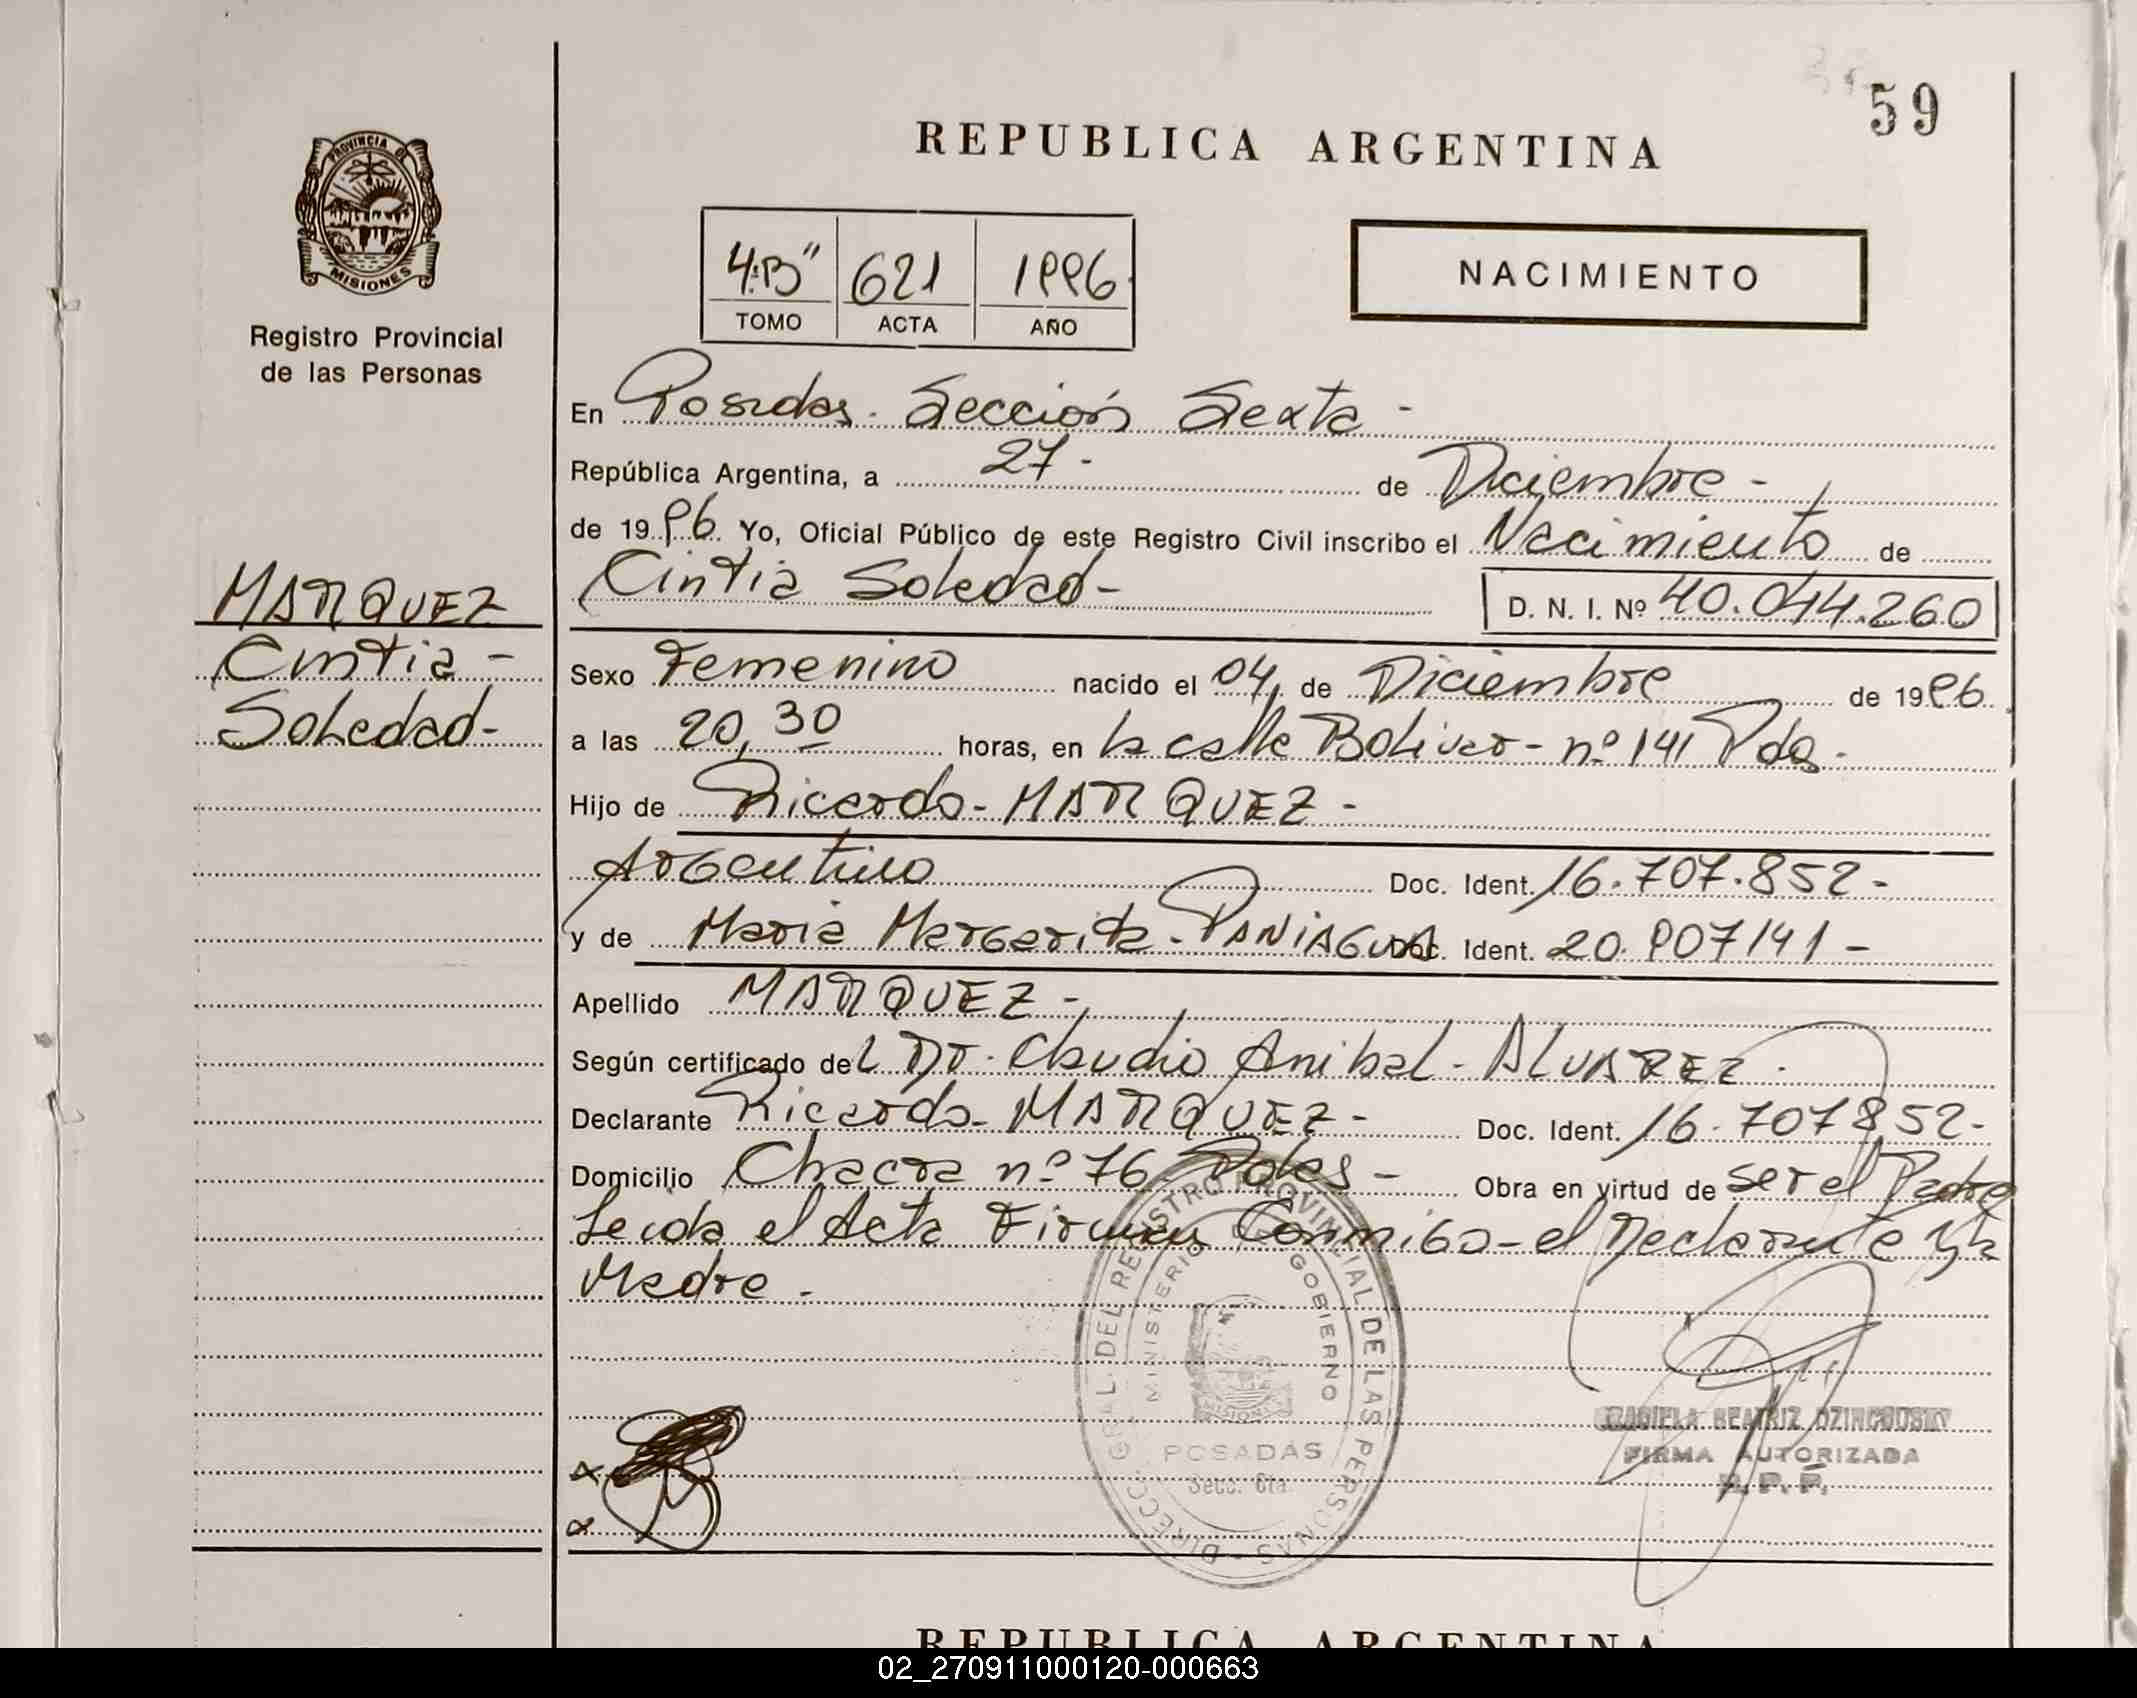 59
REPUBLICA ARGENTINA
PROVINCIA DE
MISIONES
Registro Provincial
de las Personas
4:"B" 621 1996
TOMO ACTA AÑO
NACIMIENTO
En Posadas. Sección Sexta -
República Argentina, a 27- de Diciembre -
de 1996 Yo, Oficial Público de este Registro Civil inscribo el Nacimiento de
Cintia Soledad- D. N. I. Nº 40.044.260
MARQUEZ
Cintia -
Soledad-
Sexo Femenino nacido el 04, de Diciembre de 1996
a las 20,30 horas, en la calle Bolivar - nº 141 Pdas.
Hijo de Ricardo - MARQUEZ -
Argentino Doc. Ident. 16.707.852-
y de Maria Margarita - PANIAGUA Doc. Ident. 20.907141 -
Apellido MARQUEZ -
Según certificado del Dr. Claudio Anibal - ALVAREZ.
Declarante Ricardo - MARQUEZ - Doc. Ident. 16.707852-
Domicilio Chacra nº 76 Pdas - Obra en virtud de ser el Padre
Leida el Acta Firman Conmigo - el Declarante y la
Madre.
DIRECC. GRAL. DEL REGISTRO PROVINCIAL DE LAS PERSONAS -
MINISTERIO DE GOBIERNO
MISIONES
POSADAS
Secc. 6ta.
GRACIELA BEATRIZ
FIRMA AUTORIZADA
R. P. P.
REPUBLICA ARGENTINA
02_270911000120-000663